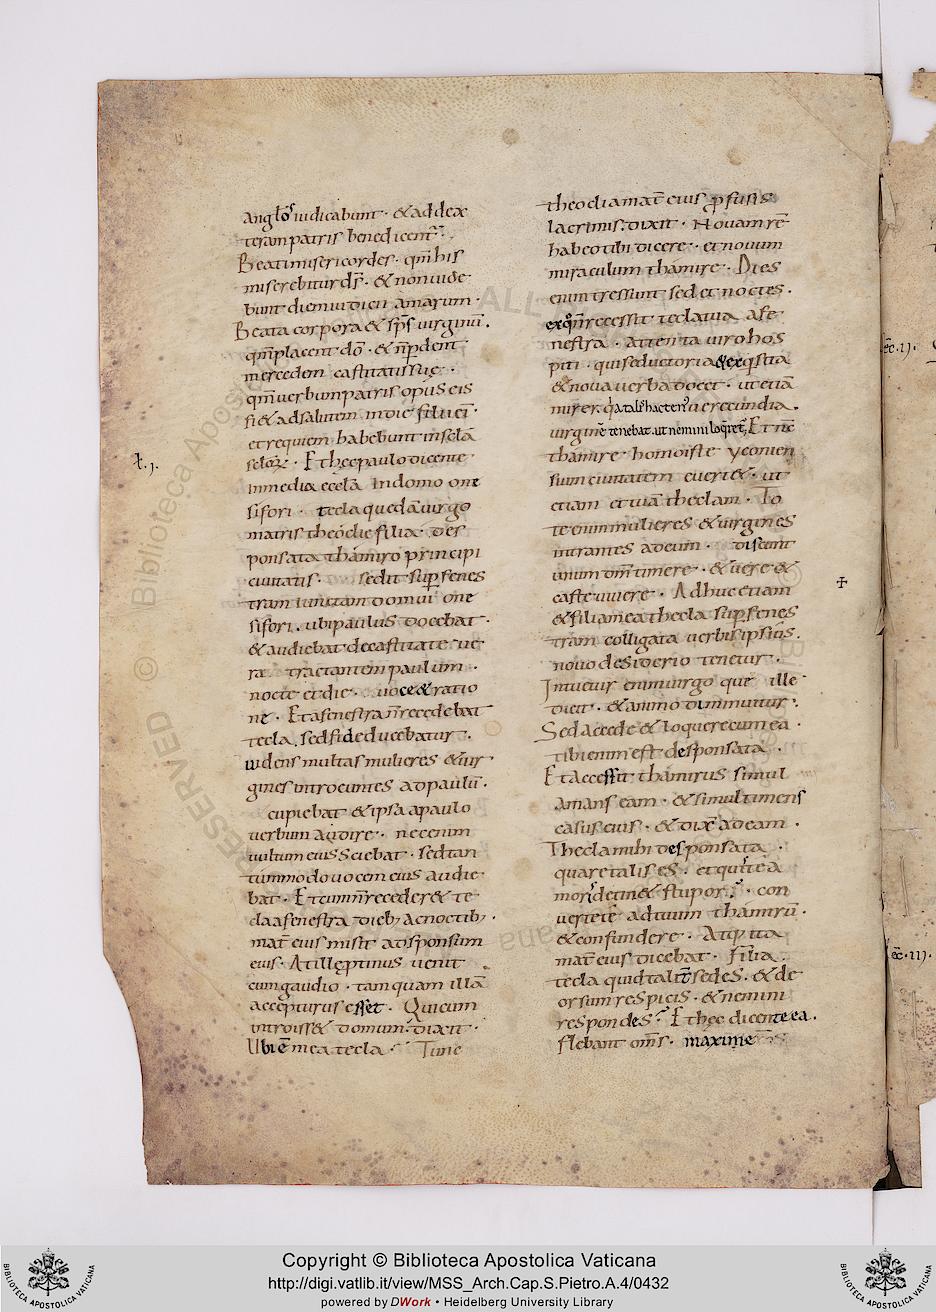 anglos iudicabunt · & ad dex
teram patris benedicent᷒ ·
Beati misericordes · qm̄ his
miserebitur dš · & non uide
bunt diem iudicii amarum ·
Beata corpora & sp̄s uirginū ·
qm̄ placent dō · & n̄ perdent
mercedem castitatis suę ·
qm̄ uerbum patris opus eis
fi& ad salutem in die filii ei᷒ ·
et requiem habebunt in sclā
sclorꝝ · Et hęc paulo dicente
in media ecclā in domo one
sifori · tecla quedā uirgo
matris theodie filia · des
ponsata thamiro principi
ciuitatis · sedit sup̱ fenes
tram iunctam domui one
sifori · ubi paulus docebat ·
& audiebat de castitate ue
ra tractantem paulum ·
nocte et die · uoce & ratio
ne · Et a fenestra n̄ recedebat
tecla, sed fide ducebatur ·
uidens multas mulieres & uir
gines introeuntes ad paulū ·
cupiebat & ipsa a paulo
uerbum audire · nec enim
uultum eius sciebat · sed tan
tummodo uocem eius audie
bat · Et cum n̄ receder& te
cla a fenestra dieb; ac noctib; ·
mat̄ eius misit ad sponsum
eius · At ille ptinus uenit
cum gaudio · tamquam illā
accepturus esset · Qui cum
introiss& domum · dixit ·
Ubi ē mea tecla · Tunc
theodia mat̄ eius p̱fusis
lacrimis · dixit · Nouam rē
habeo tibi dicere · et nouum
miraculum thamire · Dies
enim tres sunt sed et noctes ·
ex quo n̄ recessit tecla uia a fe
nestra · Attenta uiro hos
piti · qui seductoria & exqsita
& noua uerba docet · ut etiā
mirer · q̄ a tale hacten᷒ uerecundia ·
uirginē tenebat · ut nemini loqret᷒, Et nc̄
thamire · homo iste yconien
sium ciuitatem euert& · ut
etiam et tuā theclam · To
te enim mulieres & uirgines
intrantes ad eum · discunt
unum dm̄ timere · & uere &
caste uiuere · Adhuc etiam
& filia mea thecla sup̱ fenes
tram colligata uerbis ipsius ·
nouo desiderio tenetur ·
Intuetur enim uirgo que ille
dicit · & animo diminuitur ·
Sed accede & loquere cum ea ·
tibi enim est desponsata ·
Et accessit thamirus simul
amans eam · & simul timens
casus eius · & dixē ad eam ·
Thecla mihi desponsata ·
quare talis es · et quis te a
mor detin& stupor · con
uertere ad tuum thamirū ·
& confundere · At ip̄ ita
mat̄ eius dicebat · filia
tecla quid taliter sedes · & de
orsum respicis · & nemini
respondes · Et hęc dicente ea ·
flebant om̄s · maxime
ł. ı.
✢
ēc. ıı.
ēc. ııı.
© Biblioteca Apostolica Vaticana
ALL
RESERVED
Copyright © Biblioteca Apostolica Vaticana
http://digi.vatlib.it/view/MSS_Arch.Cap.S.Pietro.A.4/0432
powered by DWork • Heidelberg University Library
BIBLIOTECA APOSTOLICA VATICANA
BIBLIOTECA APOSTOLICA VATICANA